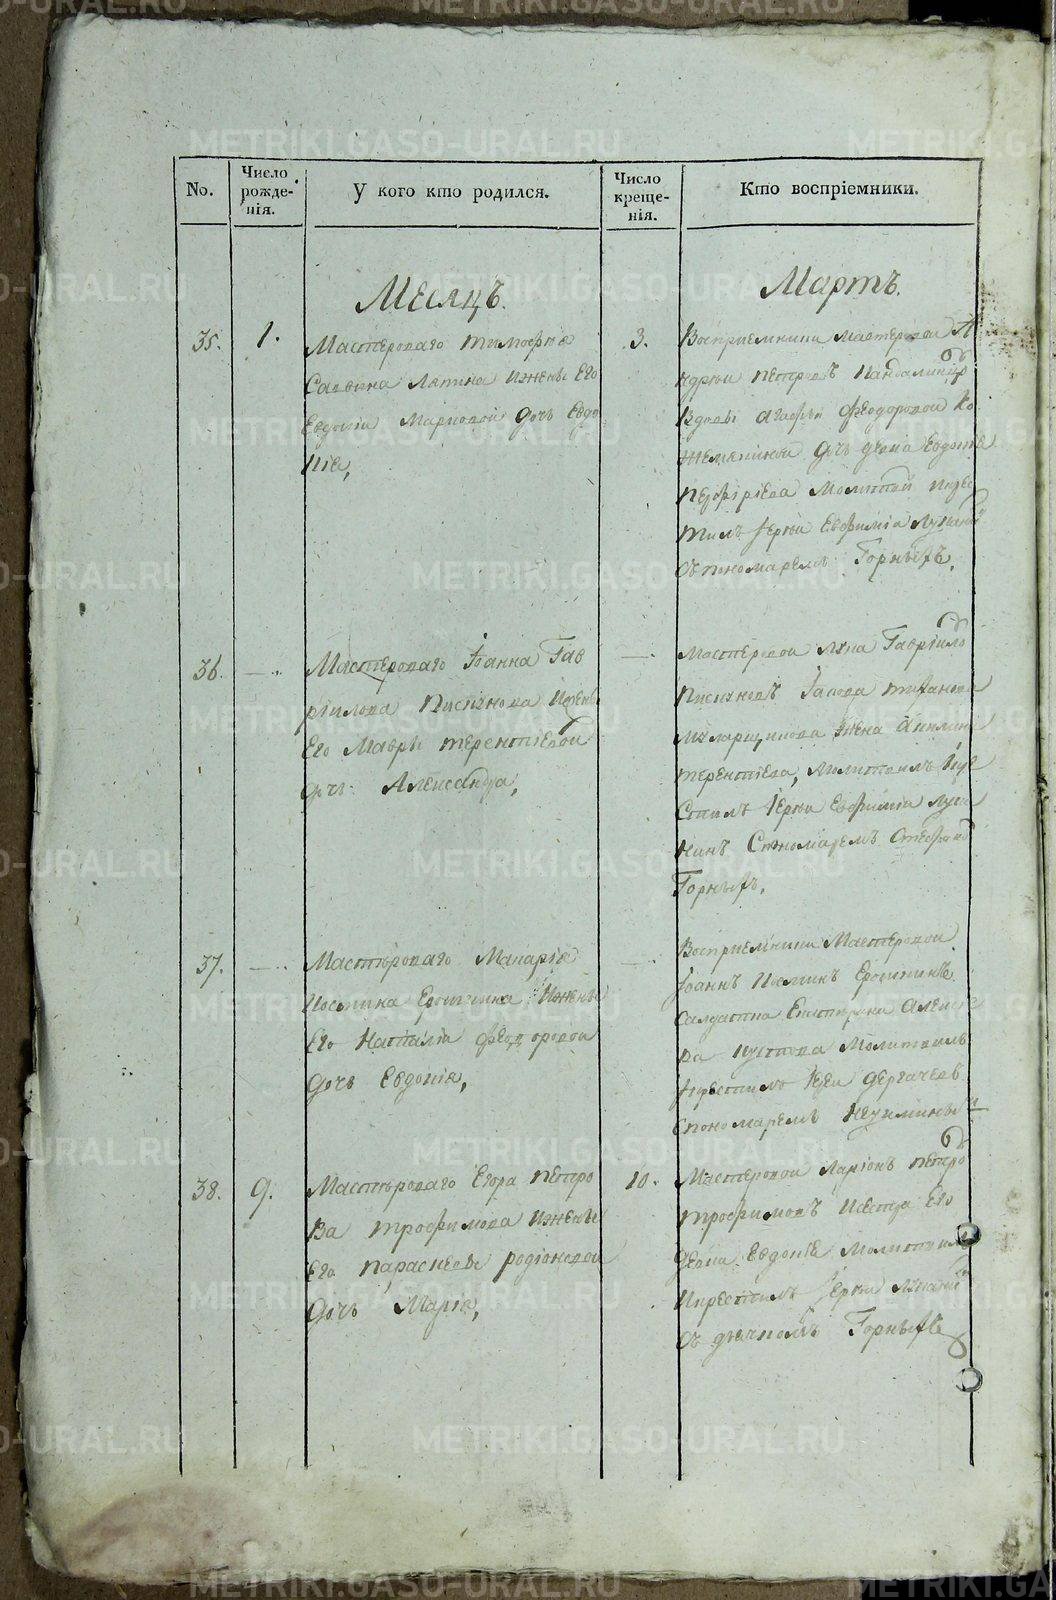 No.
Число рожде-нія.
У кого кто родился.
Число креще-нія.
Кто воспріемники.
Месяцъ.
Мартъ.
35.
1.
Мастероваго Тимофея
Саввина Ляпина Ижены Его
Евдокіи Марковой дочь Евдо
кіе,
3.
Восприемники мастеровой А
ндреи Петровъ
Вдовы Агафьи Феодоровой Ко
жемякиной дочь девка
Порфиріева Молитвой крес
тилъ Іереи Евфимій
съ пономаремъ Горныхъ.
36.
Мастероваго Іоанна Гав
рилова Пискунова Ижены
Его Мавры Терентіевой
дочь Александра,
Мастеровой Лука Гавріило
Пискуновъ Іакова
жена
Терентіева, Молитвилъ Икре
стилъ Іереи Евфимій
Спономаремъ Стефано
Горныхъ.
37.
Мастероваго Макарія
Косьмина Ерошкина Ижены
Его Наталіи Феодоровой
дочь Евдокія,
Восприемники Мастеровой
Іоаннъ
Салдатка Екатерина Алексе
ва Молитвилъ
Икрестилъ Іереи Дергачевъ
Спономаремъ
38.
9.
Мастероваго Егора Петро
ва Трофимова Ижены
Его Парасковьи Родіоновой
дочь Марія,
10.
Мастеровой Ларіонъ Петро
Трофимовъ Исестра Его
девка Евдокіе Молитвилъ
Икрестилъ Іереи
съ дьячкомъ Горныхъ
METRIKI.GASO-URAL.RU